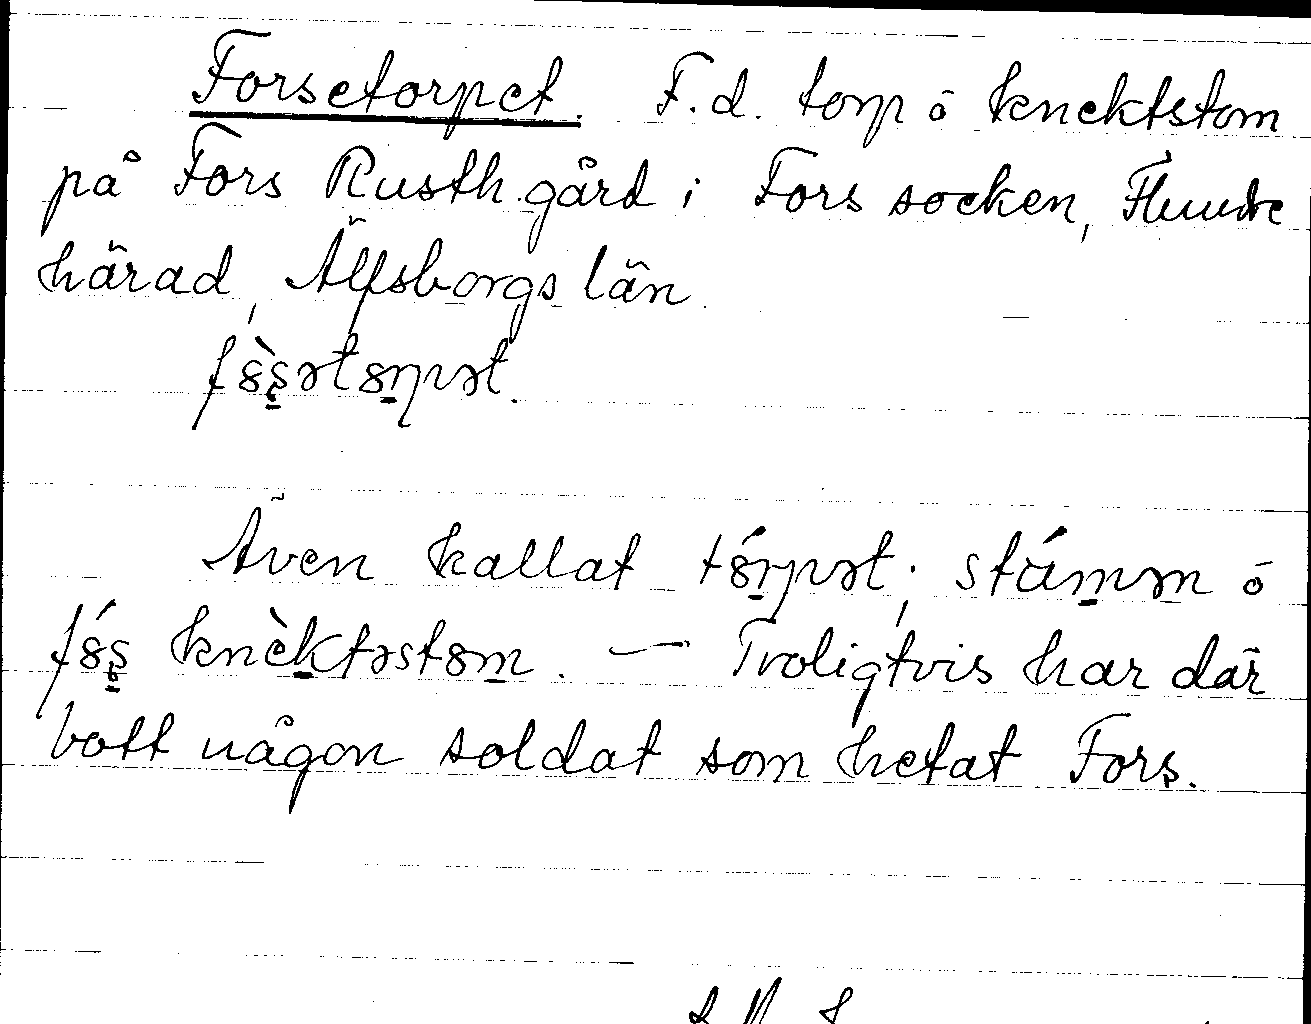 Forsetorpet. F.d. torp ō knektstom
på Fors Rusth.gård i Fors socken, Flundre
härad, Älfsborgs län.
fꞝ̀s̠ətꞝṟpət.
Även kallat tꞝ́ṟpət; stámən ō
fꞝ́s̠ knèḵtəstꞝm̠. — Troligtvis har där
bott någon soldat som hetat Fors.